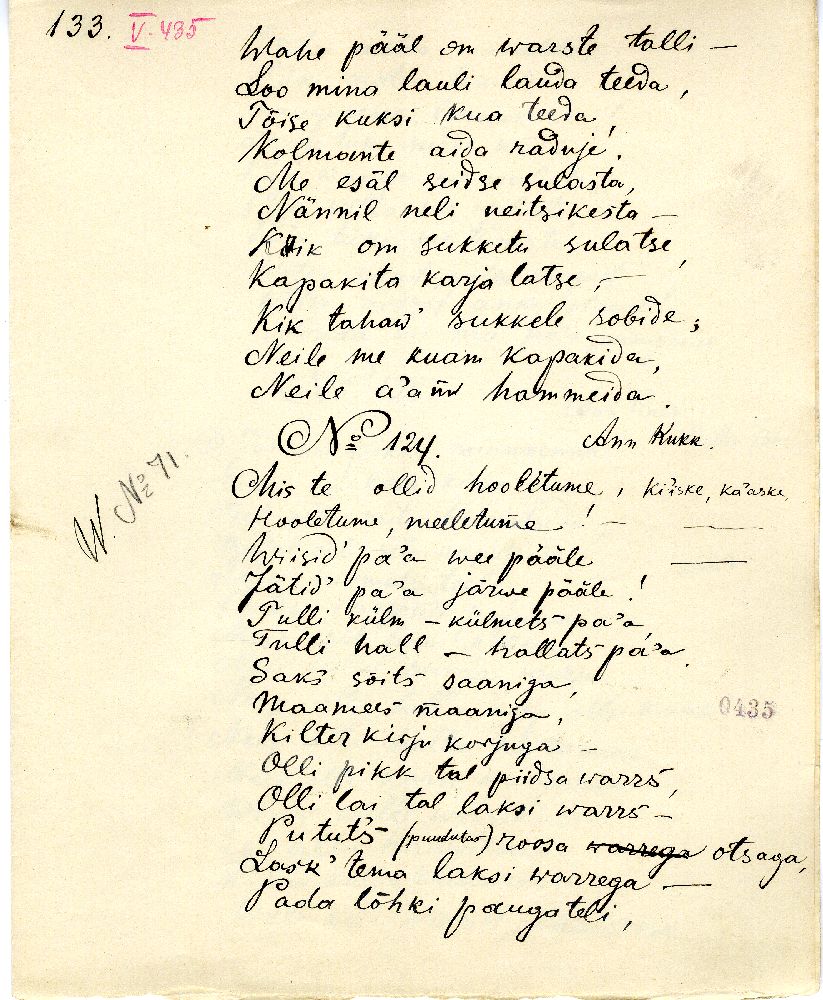 133. V. 435
Wahe pääl om warste talli —
Loo mina lauli lauda teeda,
Tõise kuksi kua teeda,
Kolmante aida raduje.
Me esäl seidse sulasta,
Nännil neli neitsikesta —
Kõik om sukketu sulatse,
Kapakita karja latse, —
Kik tahaw' sukkele sobide;
Neile me kuam kapakida,
Neile a'am hammeida.
Nº 124. Ann Kukk.
W. Nº 71.
Mis te ollid hooletume, ki'iske, ka'aske,
Hooletume, meeletume! — —
Wiisid' pa'a wee pääle —
Jätid' pa'a järwe pääle!
Tulli külm — külmets pa'a,
Tulli hall — hallats pa'a.
Saks sõits saaniga,
Maamees maaniga,
Kilter kirju korjuga —
Olli pikk tal piidsa warrs,
Olli lai tal laksi warrs —
Pututs (puudutas) roosa warrega otsaga,
Lask' tema laksi warrega —
Pada lõhki paugateli,
0435